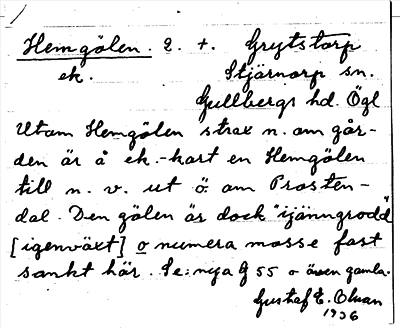 Hemgölen. 2. +. Grytstorp
ek. Stjärnorp sn.
Gullbergs hd. Ögl
Utom Hemgölen strax n. om går-
den är å ek.-kart en Hemgölen
till n. v. ut ö. om Prosten-
dal. Den gölen är dock "ijänngrodd"
[igenväxt] o numera mosse fast
sankt här. Se: nya G 55 o även gamla.
Gustaf E. Olson
1936